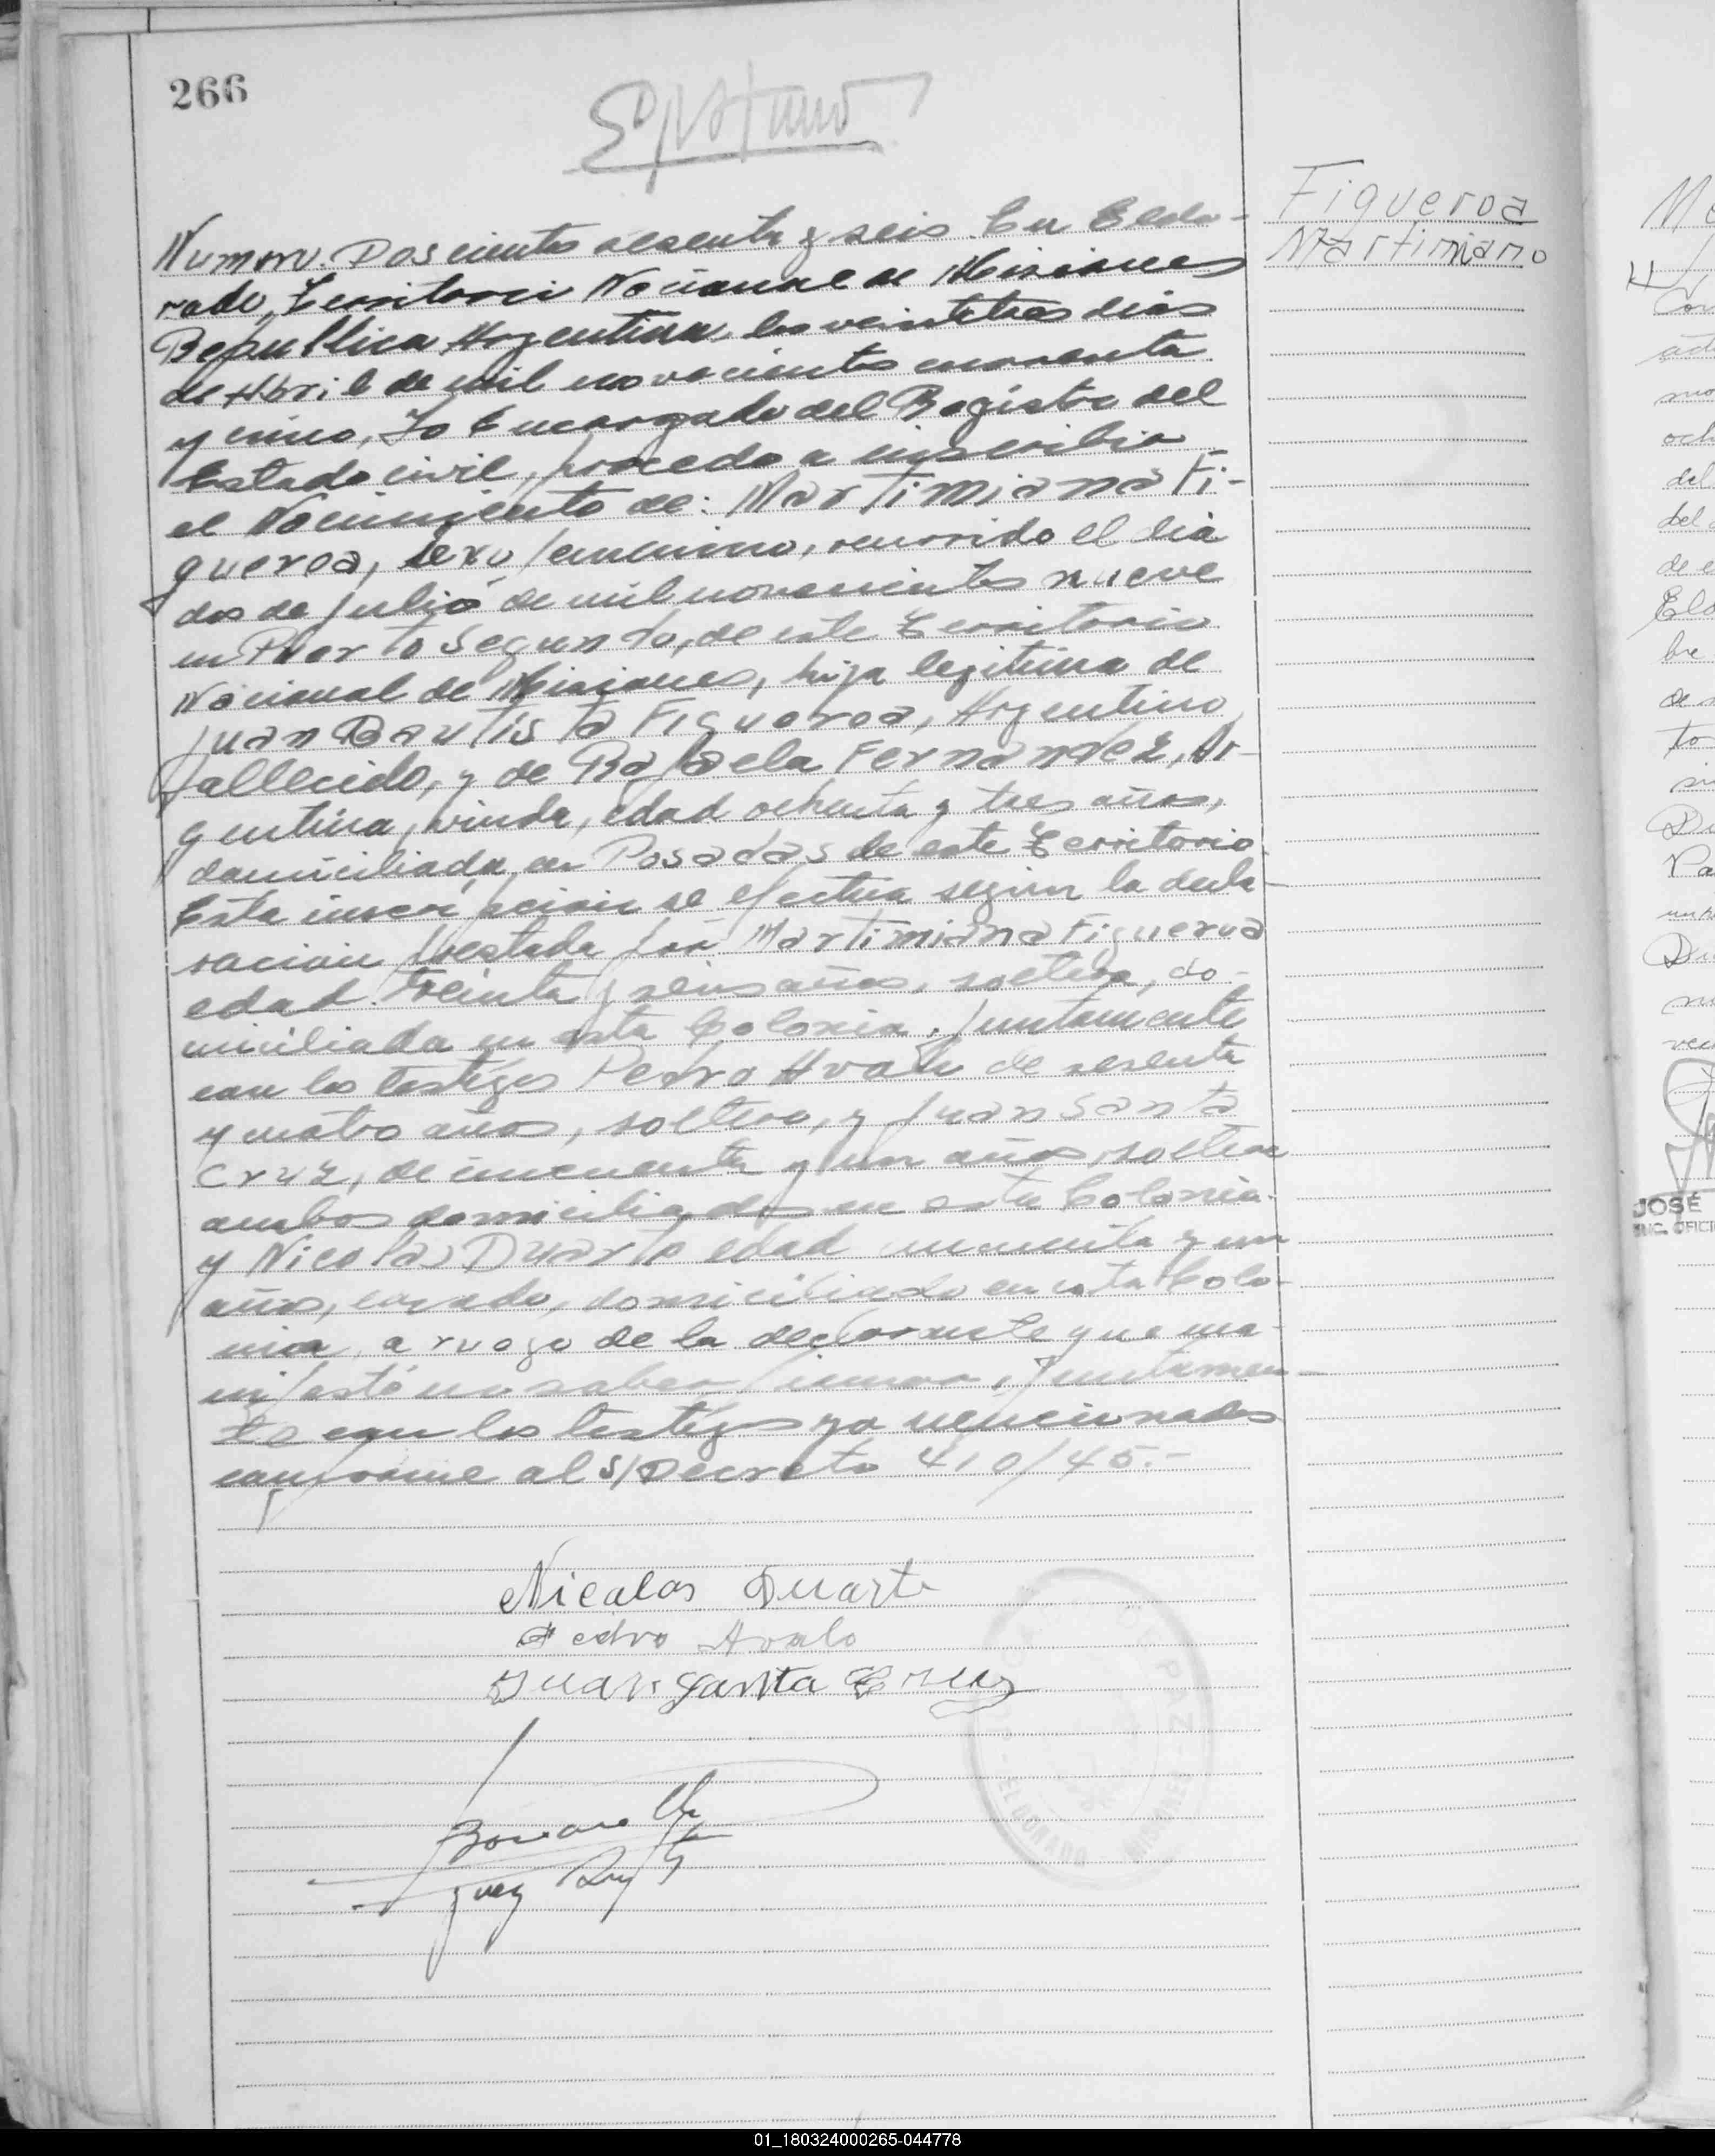 266
Figueroa
Martimiano
Numero. Doscientos sesenta y seis. En Eldo-
rado, Territorio Nacional de Misiones
Republica Argentina, los veintetres dias
de Abril de mil novecientos cuarenta
y cinco, Yo Encargado del Registro del
Estado civil, procedo a inscribir
el Nacimiento de: Martimiana Fi-
gueroa, sexo femenino, ocurrido el dia
dos de julio de mil novecientos nueve
en Puerto Segundo, de este Territorio
Nacional de Misiones, hija legitima de
Juan Bautista Figueroa, Argentino,
fallecido, y de Rafaela Fernandez, Ar-
gentina, viuda, edad ochenta y tres años,
domiciliada en Posadas de este Territorio.
Esta inscripcion se efectua segun la decla-
racion prestada por Martimiana Figueroa
edad treinta y seis años, soltera, do-
miciliada en esta Colonia. Juntamente
con los testigos Pedro Avalo de sesenta
y cuatro años, soltero, y Juan Santa
Cruz, de cincuenta y un años, soltero
ambos domiciliados en esta Colonia.
y Nicolas Duarte edad cincuenta y un
años, casado, domiciliado en esta Colo-
nia, a ruego de la declarante que ma-
nifestó no saber firmar, Juntamen-
te con los testigos ya mencionados
conforme al S/Decreto 410/45.-
Nicolas Duarte
Pedro Avalo
Juan Santa Cruz
Juez
DE PAZ
ELDORADO
MISIONES
JOSÉ
ENC. OFICI
01_180324000265-044778